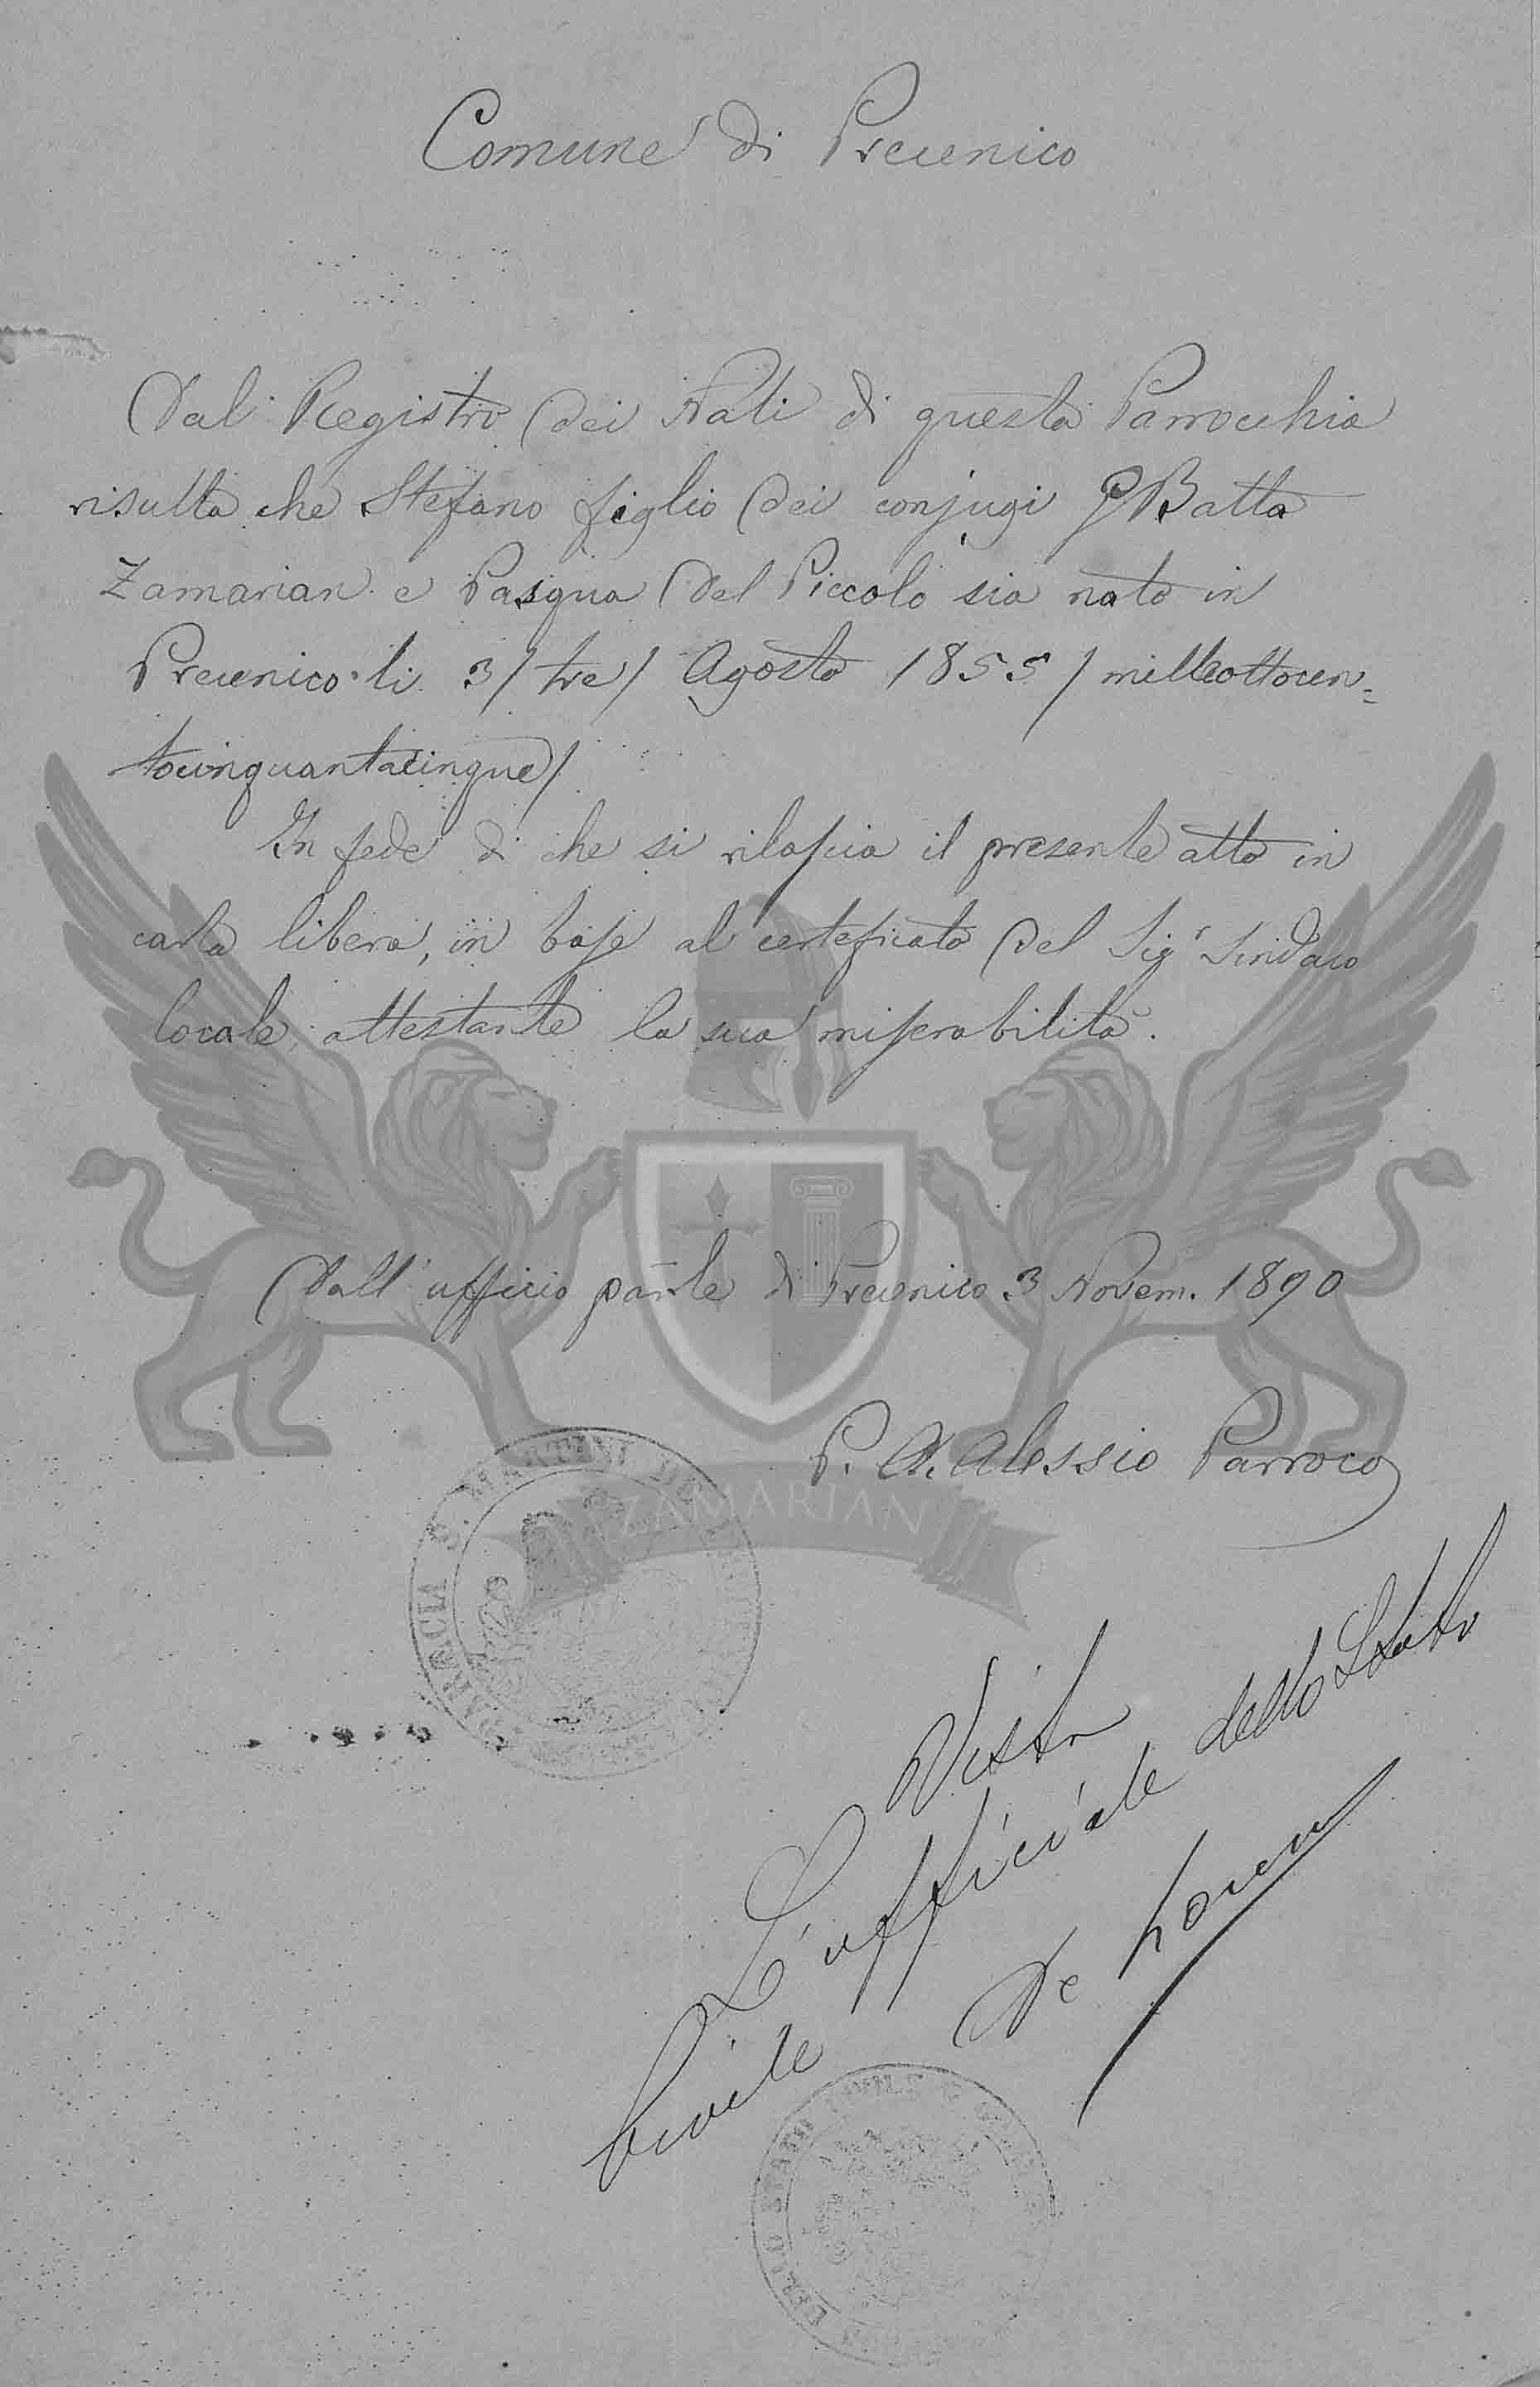 Comune di Precenico
Dal Registro dei Nati di questa Parrocchia
risulta che Stefano figlio dei conjugi GBatta
Zamarian e Pasqua Del Piccolo sia nato in
Precenico li 3/tre/ Agosto 1855/ milleottocen=
tocinquantacinque/
In fede di che si rilascia il presente atto in
carta libera, in base al certeficato del Sigr Sindaco
locale, attestante la sua miserabilità.
Dall'ufficio parrle di Precenico 3 Novem. 1890
P. A. Alessio Parroco
ZAMARIAN
PAROCCHIA S. MARTINI
Visto
L'ufficiale dello Stato
Civile De
STATO CIVILE